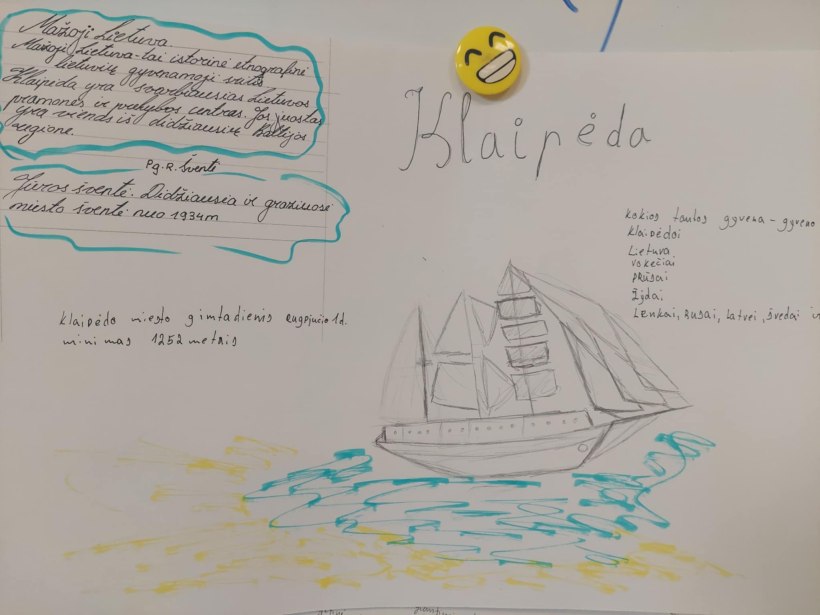 Mažoji Lietuva.
Mažoji Lietuva-tai istorinė etnografinė
lietuvių gyvenamoji sritis
Klaipėda yra svarbiausias Lietuvos
pramonės ir prekybos centras. Jos uostas
yra vienas iš didžiausių Baltijos
regione.
Pg. R. Šventė
Jūros šventė. Didžiausia ir gražiausia
miesto šventė nuo 1934m
Klaipėda
kokios tautos gyvena - gyveno
Klaipėdoj
Lietuva
vokečiai
prūsai
Žydai
Lenkai, Rusai, Latvei, švedai ir
Klaipėdo miesto gimtadienis rugpjučio 1d.
minimas 1252 metais